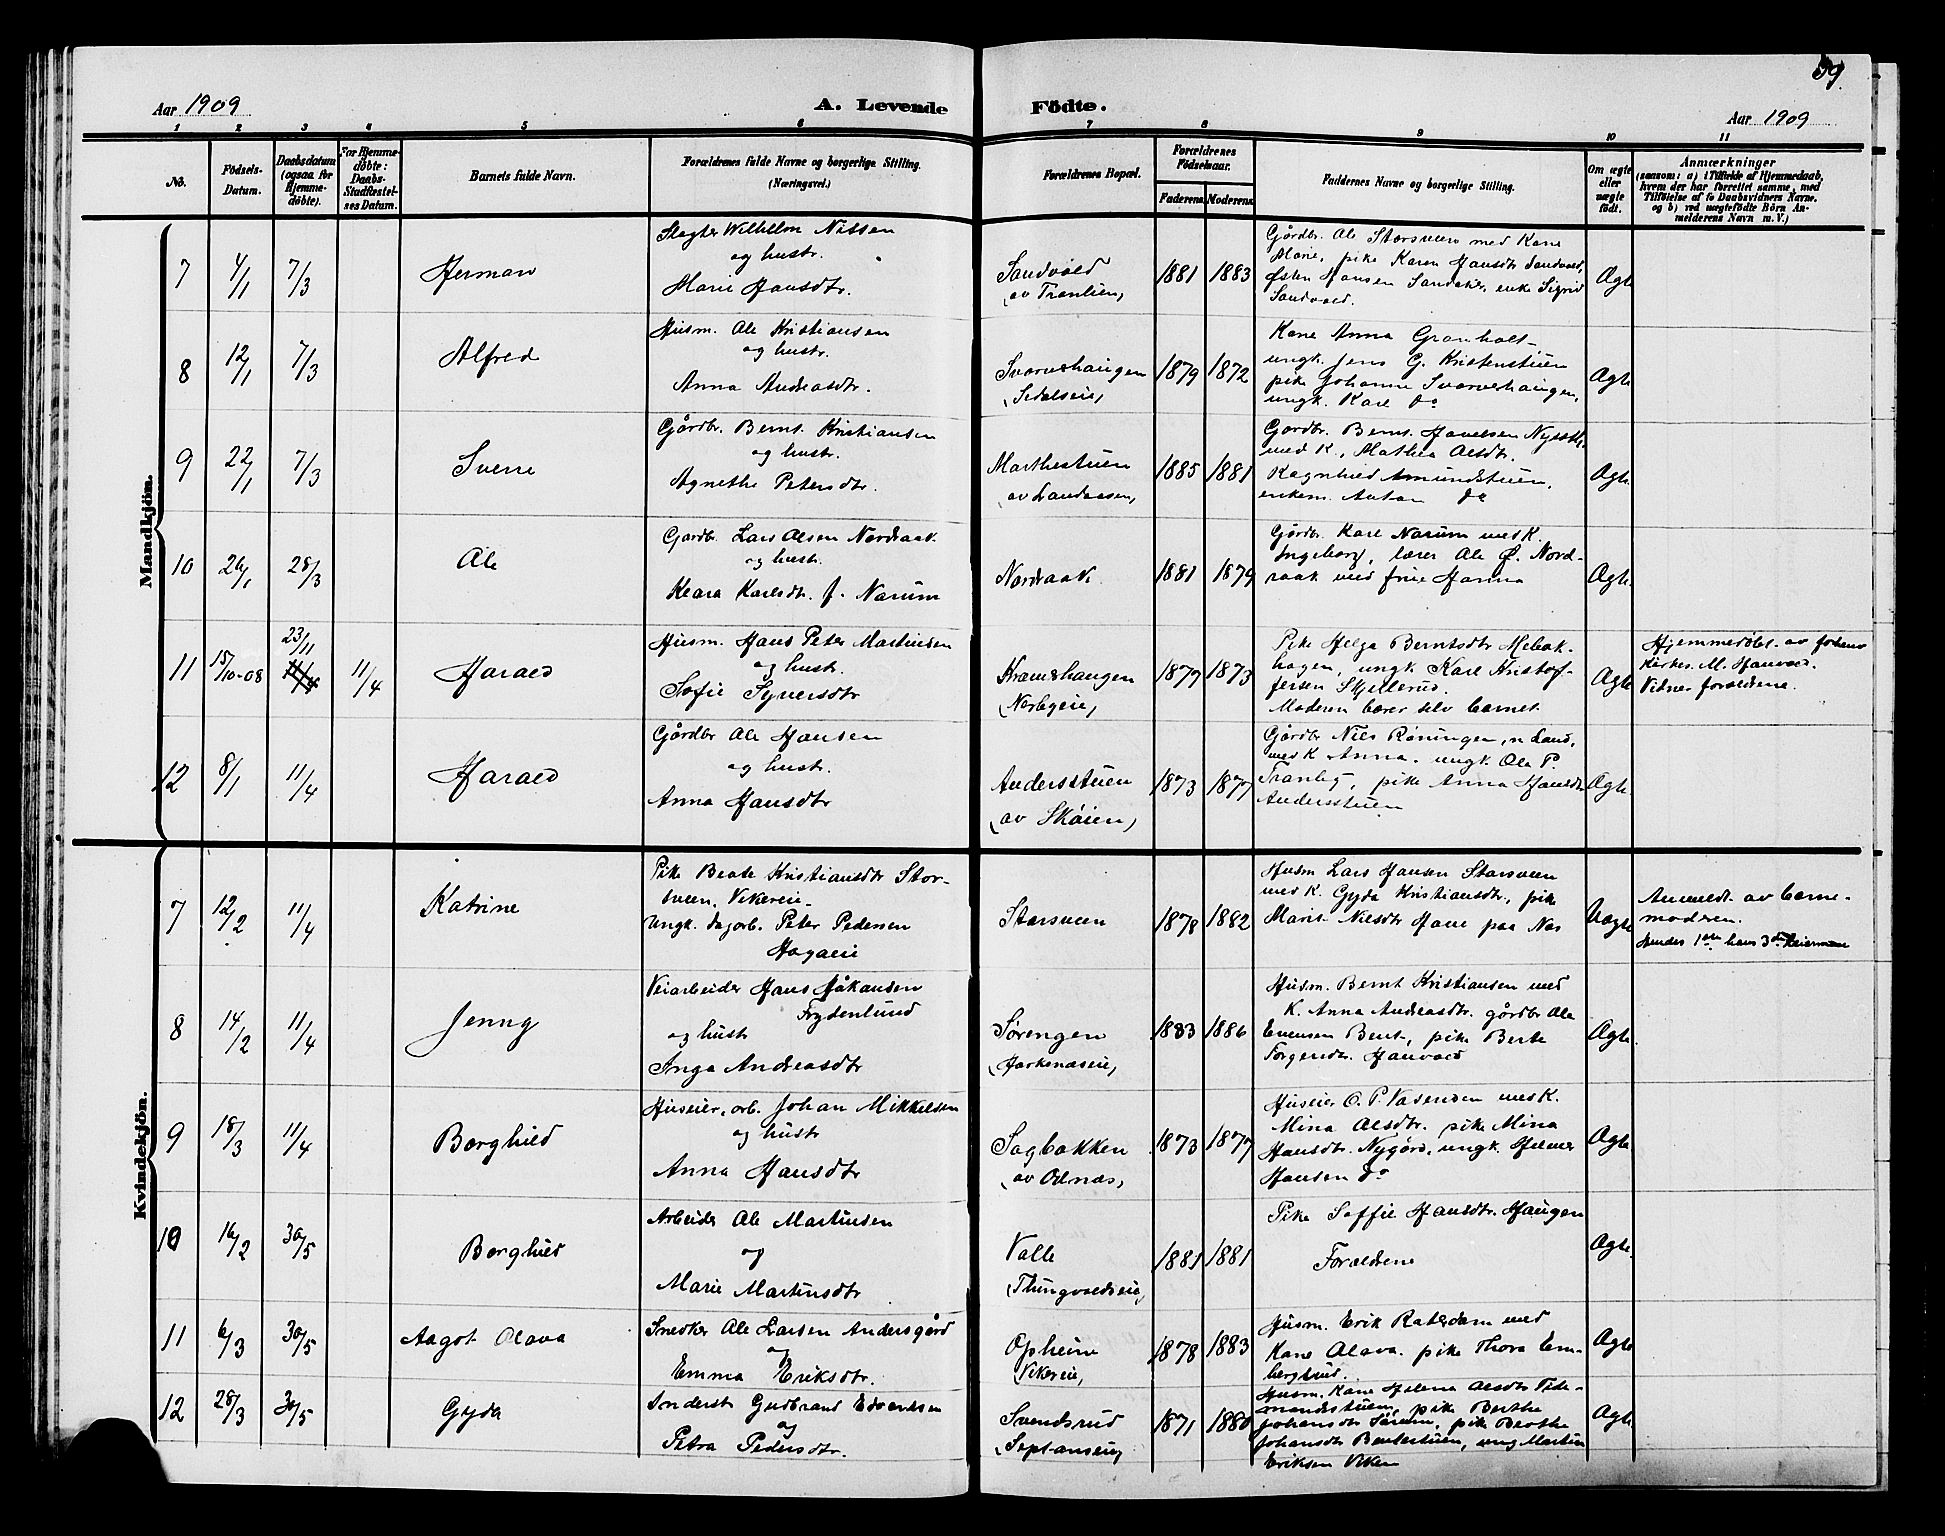 59.
Aar 1909
A. Levende Födte.
Aar 1909
1 2 3 4 5 6 7 8 9 10 11
No.
Födsels-
Datum.
Daabsdatum
(ogsaa for
Hjemme-
döbte).
For Hjemme-
döbte:
Daabs-
Stadfæstel-
ses Datum.
Barnets fulde Navn.
Forældrenes fulde Navne og borgerlige Stilling.
(Næringsvei.)
Forældrenes Bopæl.
Forældrenes
Födselsaar.
Faderens Moderens
Faddernes Navne og borgerlige Stilling.
Om ægte
eller
uægte
født.
Anmærkninger
(saasom: a) i Tilfælde af Hjemmedaab,
hvem der har forrettet samme, med
Tilföielse af to Daabsvidners Navne.
og b) ved uægtefödte Börn An-
melderens Navn m. V.)
Mandkjön.
7
4/1
7/3
Herman
Slagter Wilhelm Nilsen
og hustr.
Marie Hansdtr.
Sandvold
(av Tranlien)
1881 1883
Gårdbr. Ole Storsveen med Kone
Marie, pike Karen Hansdtr Sandvold,
Østen Hansen Sandaker, enke Sigrid
Sandvold.
Ægte
8
12/1
7/3
Alfred
Husm. Ole Kristiansen
og hustr.
Anna Andreasdtr.
Svarveshaugen
1879 1872
Kone Anna Granholt
ungk. Jens G. Kristenstuen
pike Johanne Svarveshaugen,
ungk. Karl do
Ægte
9
22/1
7/3
Sverre
Gårdbr. Bernt Kristiansen
og hustr.
Agnethe Petersdtr.
Marthestuen
(av Landaasen)
1885 1881
Gardbr. Bernt
med K. Mathea Olsdtr.
Ragnhild Amundstuen,
enkem. Anton do
Ægte
10
26/1
28/3
Ole
Gardbr. Lars Olsen Nordraak
og hustr.
Klara Karlsdtr. f. Narum
Nordraak.
1881 1879
Gårdbr. Karl Narum med K.
Ingeborg, lærer Ole Ø. Nord-
raak med frue Hanna
Ægte
11
15/10-08
23/11
11/4
11/4
Harald
Husm. Hans Peter Martinsen
og hustr.
Sofie Syversdtr
Kramshaugen
1879 1873
Pike Helga Berntsdtr Melbak-
hagen, ungk Karl Kristof-
fersen Skjellerud.
Moderen bærer selv barnet
Ægte
Hjemmedøbt av Johan
Kirkes. M. Hanvold.
Vidner forældrene.
12
8/1
11/4
Harald
Gårdbr Ole Hansen
og hustr.
Anna Hansdtr
Andersstuen
(av Skøien)
1873 1877
Gårdbr Nils Röningen, n Land,
med K Anna. ungk. Ole P.
Tranby, pike Anna Hansdtr
Andersstuen
Ægte
Kvindekjön.
7
12/2
11/4
Katrine
Pike Beate Kristiansdtr Stor-
sveen, Vikereie.
Ungk. dagarb. Peter Pedersen
Hagaeie
Storsveen
1878 1882
Husm Lars Hansen Storsveen
med K. Gyda Kristiansdtr, pike
Marit Nilsdtr Hove paa Nes
Uægte
Anmeldt av barne-
moderen.
Hendes 1ste hans 3die leiermaal
8
14/2
11/4
Jenny
Veiarbeider Hans Håkansen
Frydenlund
og hustr
Inga Andreasdtr
Sørengen
1883 1886
Husm. Bernt Kristiansen med
K. Anna Andreasdtr. gårdbr Ole
Evensen Bent, pike Berte
Torgersdtr. Hanvold
Ægte.
9
18/3
11/4
Borghild
Huseier, arb. Johan Mikkelsen
og hustr
Anna Hansdtr
Sagbakken
(av Odnæs)
1873 1877
Huseier O. P. Vasenden med K.
Mina Olsdtr. pike Mina
Hansdtr. Nygård, ungk. Hilmer
Hansen do
Ægte
10
16/2
30/5
Borghild
Arbeider Ole Martinsen
og
Marie Martinsdtr
Valle
1881 1881
Pike Soffie Hansdtr. Haugen
Forældrene
Ægte.
11
6/3
30/5
Aagot Olava
Snedker Ole Larsen Andersgård
og
Emma Eriksdtr.
Opheim
Vikereie,
1878 1883
Husm. Erik Roterdam med
Kone Olava. pike Thora Em-
berglund.
Ægte
12
28/3
30/5
Gyda
Inderst Gudbrand Edvardsen
og
Petra Pedersdtr.
Svendsrud
1871 1880
Husm. Kone Helena Olsdtr Tide-
mandstuen, pike Berthe
Johansdtr Sørum, pike Berthe
Johansdtr Bentestuen, ung Martin
Eriksen Viken
Ægte